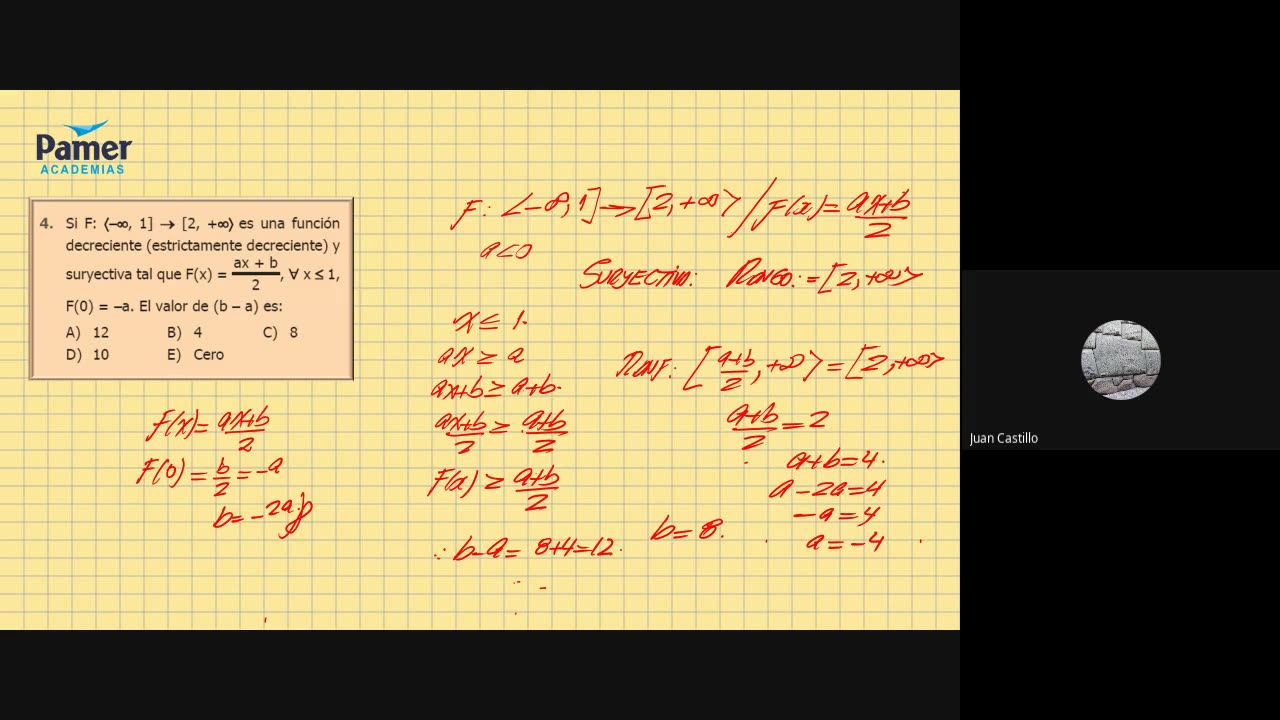 Pamer
ACADEMIAS
4. Si F: ⟨–∞, 1] → [2, +∞⟩ es una función
decreciente (estrictamente decreciente) y
suryectiva tal que F(x) = (ax + b)/2, ∀ x ≤ 1,
F(0) = –a. El valor de (b – a) es:
A) 12 B) 4 C) 8
D) 10 E) Cero
F(x) = (ax+b)/2
F(0) = b/2 = -a
b = -2a
F: <-∞, 1] → [2, +∞> / F(x) = (ax+b)/2
a<0
SURYECTIVA: RANGO: = [2, +∞>
x ≤ 1.
ax ≥ a
ax+b ≥ a+b.
(ax+b)/2 ≥ (a+b)/2
F(x) ≥ (a+b)/2
∴ b-a = 8+4=12.
RANF: [(a+b)/2, +∞> = [2, +∞>
(a+b)/2 = 2
a+b=4.
a-2a=4
-a=4
a=-4
b=8.
Juan Castillo